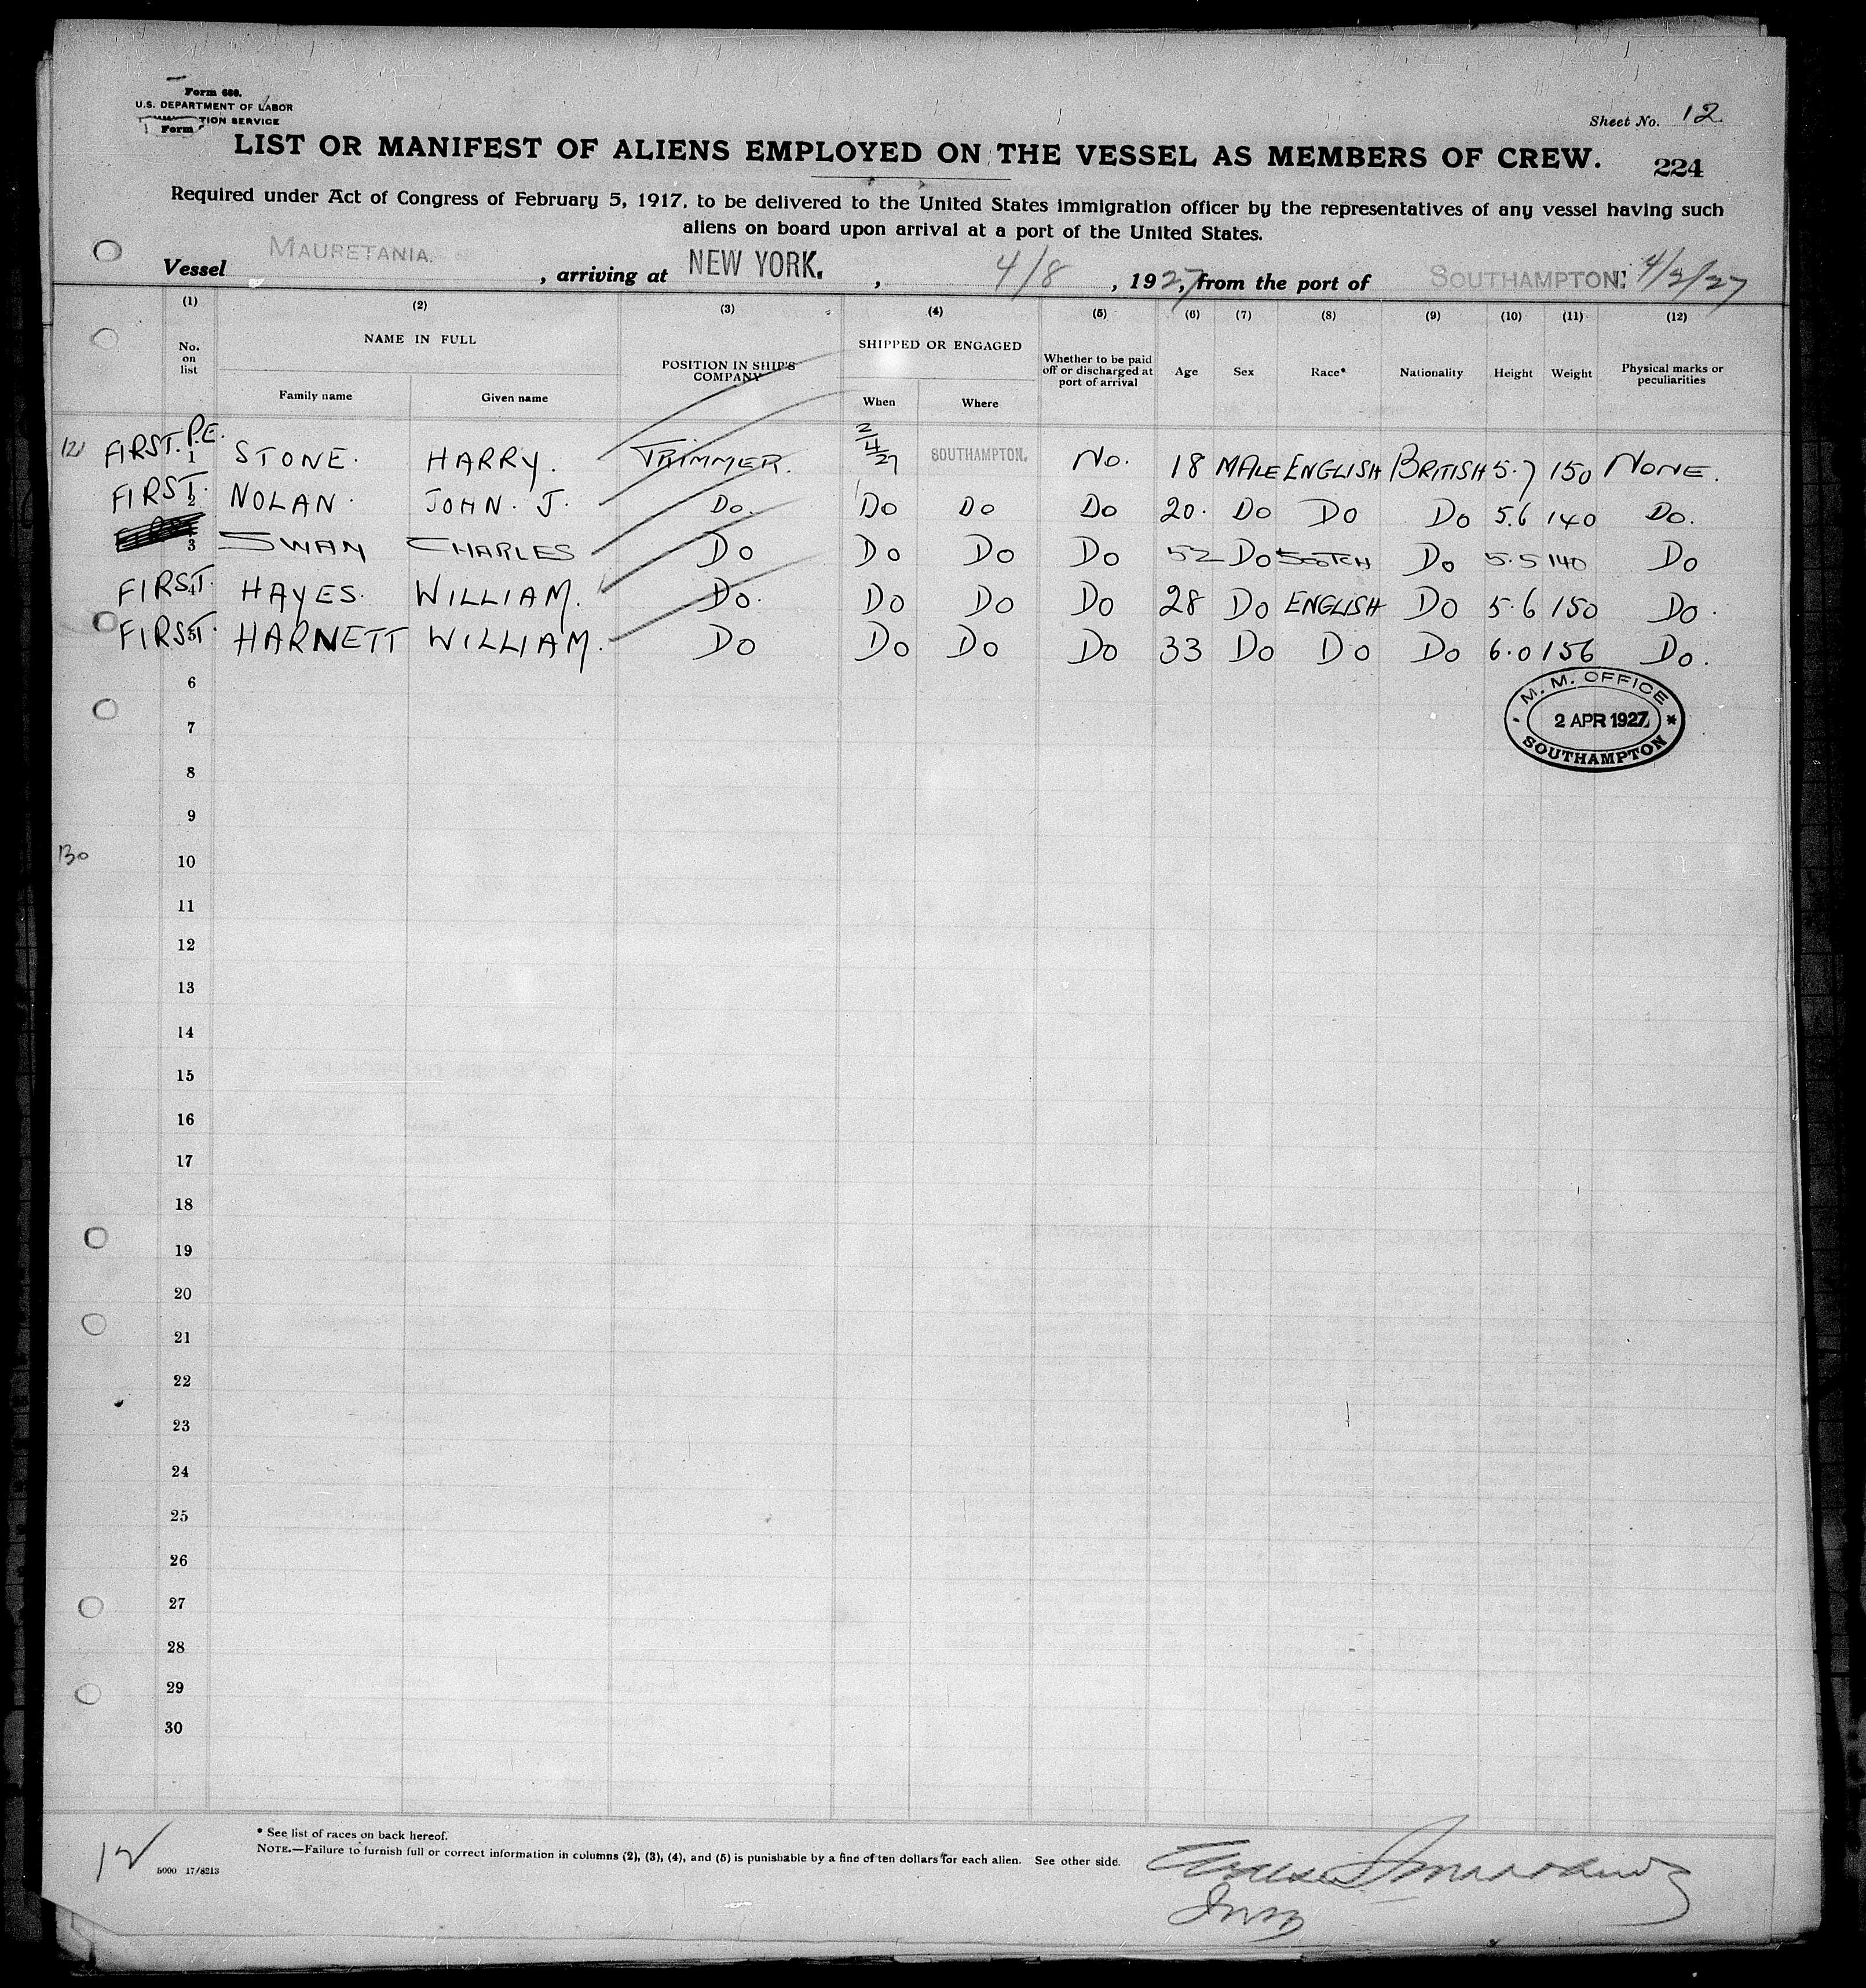 Form 680.
U.S. DEPARTMENT OF LABOR
TION SERVICE
Form
Sheet No. 12
LIST OR MANIFEST OF ALIENS EMPLOYED ON THE VESSEL AS MEMBERS OF CREW.
224
Required under Act of Congress of February 5, 1917, to be delivered to the United States immigration officer by the representatives of any vessel having such
aliens on board upon arrival at a port of the United States.
Vessel MAURETANIA. , arriving at NEW YORK. , 4/8 , 1927, from the port of SOUTHAMPTON. 4/2/27
(1) (2) (3) (4) (5) (6) (7) (8) (9) (10) (11) (12)
No. on list NAME IN FULL Family name Given name POSITION IN SHIP'S COMPANY SHIPPED OR ENGAGED When Where Whether to be paid off or discharged at port of arrival Age Sex Race* Nationality Height Weight Physical marks or peculiarities
121 FIRST. P.E. 1 STONE. HARRY. TRIMMER. 2/4/27 SOUTHAMPTON. No. 18 MALE ENGLISH BRITISH 5.7 150 NONE.
FIRST. 2 NOLAN. JOHN. J. Do. Do Do Do 20. Do Do Do 5.6 140 Do.
3 SWAN CHARLES Do Do Do Do 52 Do SCOTCH Do 5.5 140 Do
FIRST. 4 HAYES. WILLIAM. Do. Do Do Do 28 Do ENGLISH Do 5.6 150 Do.
FIRST. 5 HARNETT WILLIAM. Do Do Do Do 33 Do Do Do 6.0 156 Do.
6
M. M. OFFICE
2 APR 1927
SOUTHAMPTON
7
8
9
130 10
11
12
13
14
15
16
17
18
19
20
21
22
23
24
25
26
27
28
29
30
* See list of races on back hereof.
NOTE.—Failure to furnish full or correct information in columns (2), (3), (4), and (5) is punishable by a fine of ten dollars for each alien. See other side.
12
5000 17/8213